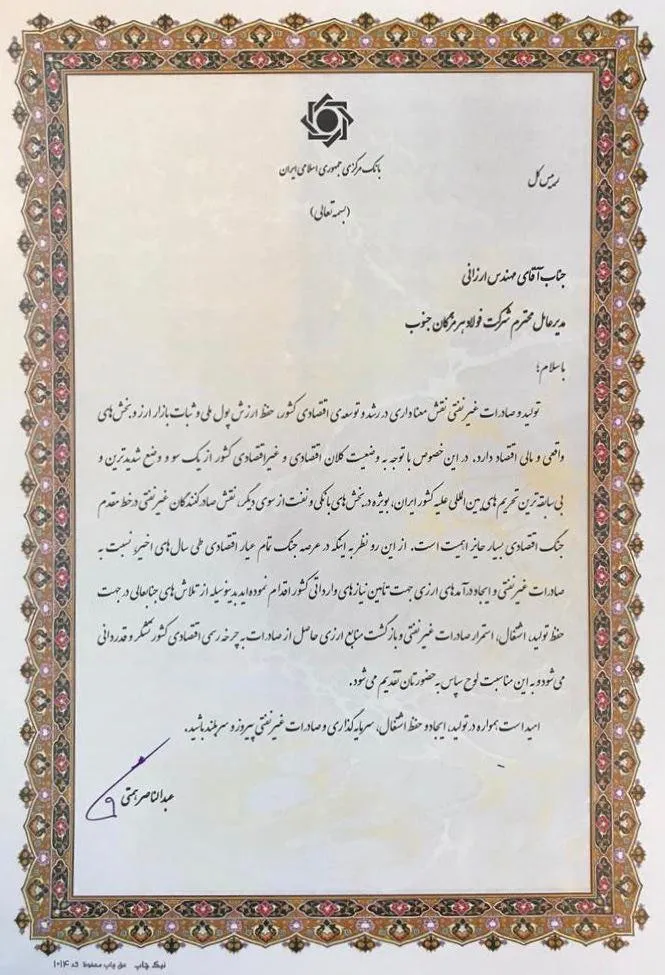 بانک مرکزی جمهوری اسلامی ایران
رییس کل
(بسمه تعالی)
جناب آقای مهندس ارزانی
مدیرعامل محترم شرکت فولاد هرمزگان جنوب
باسلام؛
تولید و صادرات غیرنفتی نقش معناداری در رشد و توسعه‌ی اقتصادی کشور، حفظ ارزش پول ملی و ثبات بازار ارز و بخش‌های
واقعی و مالی اقتصاد دارد. در این خصوص با توجه به وضعیت کلان اقتصادی و غیراقتصادی کشور از یک سو و وضع شدیدترین و
بی‌سابقه‌ترین تحریم‌های بین‌المللی علیه کشور ایران، بویژه در بخش‌های بانکی و نفت از سوی دیگر، نقش صادرکنندگان غیرنفتی در خط مقدم
جنگ اقتصادی بسیار حائز اهمیت است. از این رو نظر به اینکه در عرصه جنگ تمام عیار اقتصادی طی سال‌های اخیر، نسبت به
صادرات غیرنفتی و ایجاد درآمدهای ارزی جهت تأمین نیازهای وارداتی کشور اقدام نموده‌اید بدینوسیله از تلاش‌های جنابعالی در جهت
حفظ تولید، اشتغال، استمرار صادرات غیرنفتی و بازگشت منابع ارزی حاصل از صادرات به چرخه رسمی اقتصادی کشور تشکر و قدردانی
می‌شود و به این مناسبت لوح سپاس به حضورتان تقدیم می‌شود.
امید است همواره در تولید، ایجاد و حفظ اشتغال، سرمایه‌گذاری و صادرات غیرنفتی پیروز و سربلند باشید.
عبدالناصر همتی
نیک چاپ حق چاپ محفوظ کد ۱۰۱۴